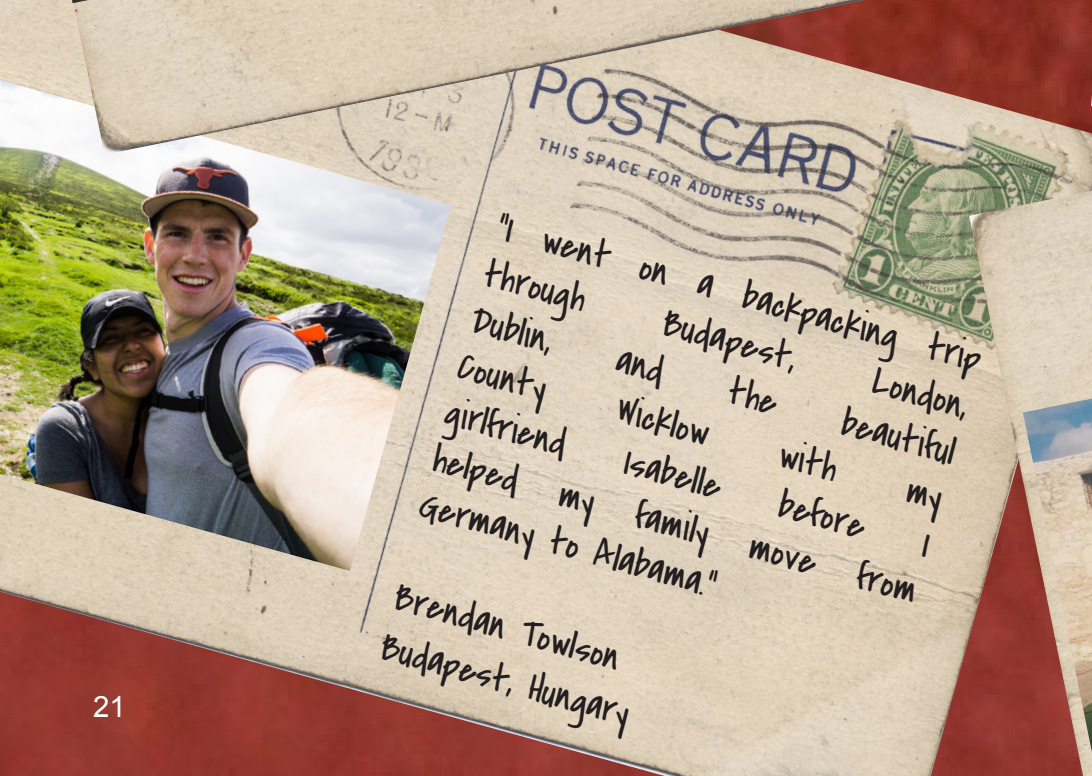 3
12-M
193
POST CARD
THIS SPACE FOR ADDRESS ONLY
1 CENT 1
FRANKLIN
"I went on a backpacking trip
through Budapest, London,
Dublin, and the beautiful
County Wicklow with my
girlfriend Isabelle before I
helped my family move from
Germany to Alabama."
Brendan Towlson
Budapest, Hungary
21